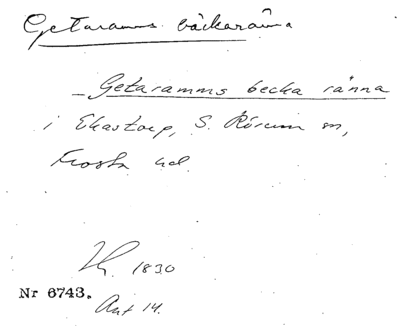 Getaramms bäckaränna
_Getaramms becka ränna
i Ekastorp, S. Rörum sn,
Frosta hd.
1830
Nr 6743.
Ant 14.